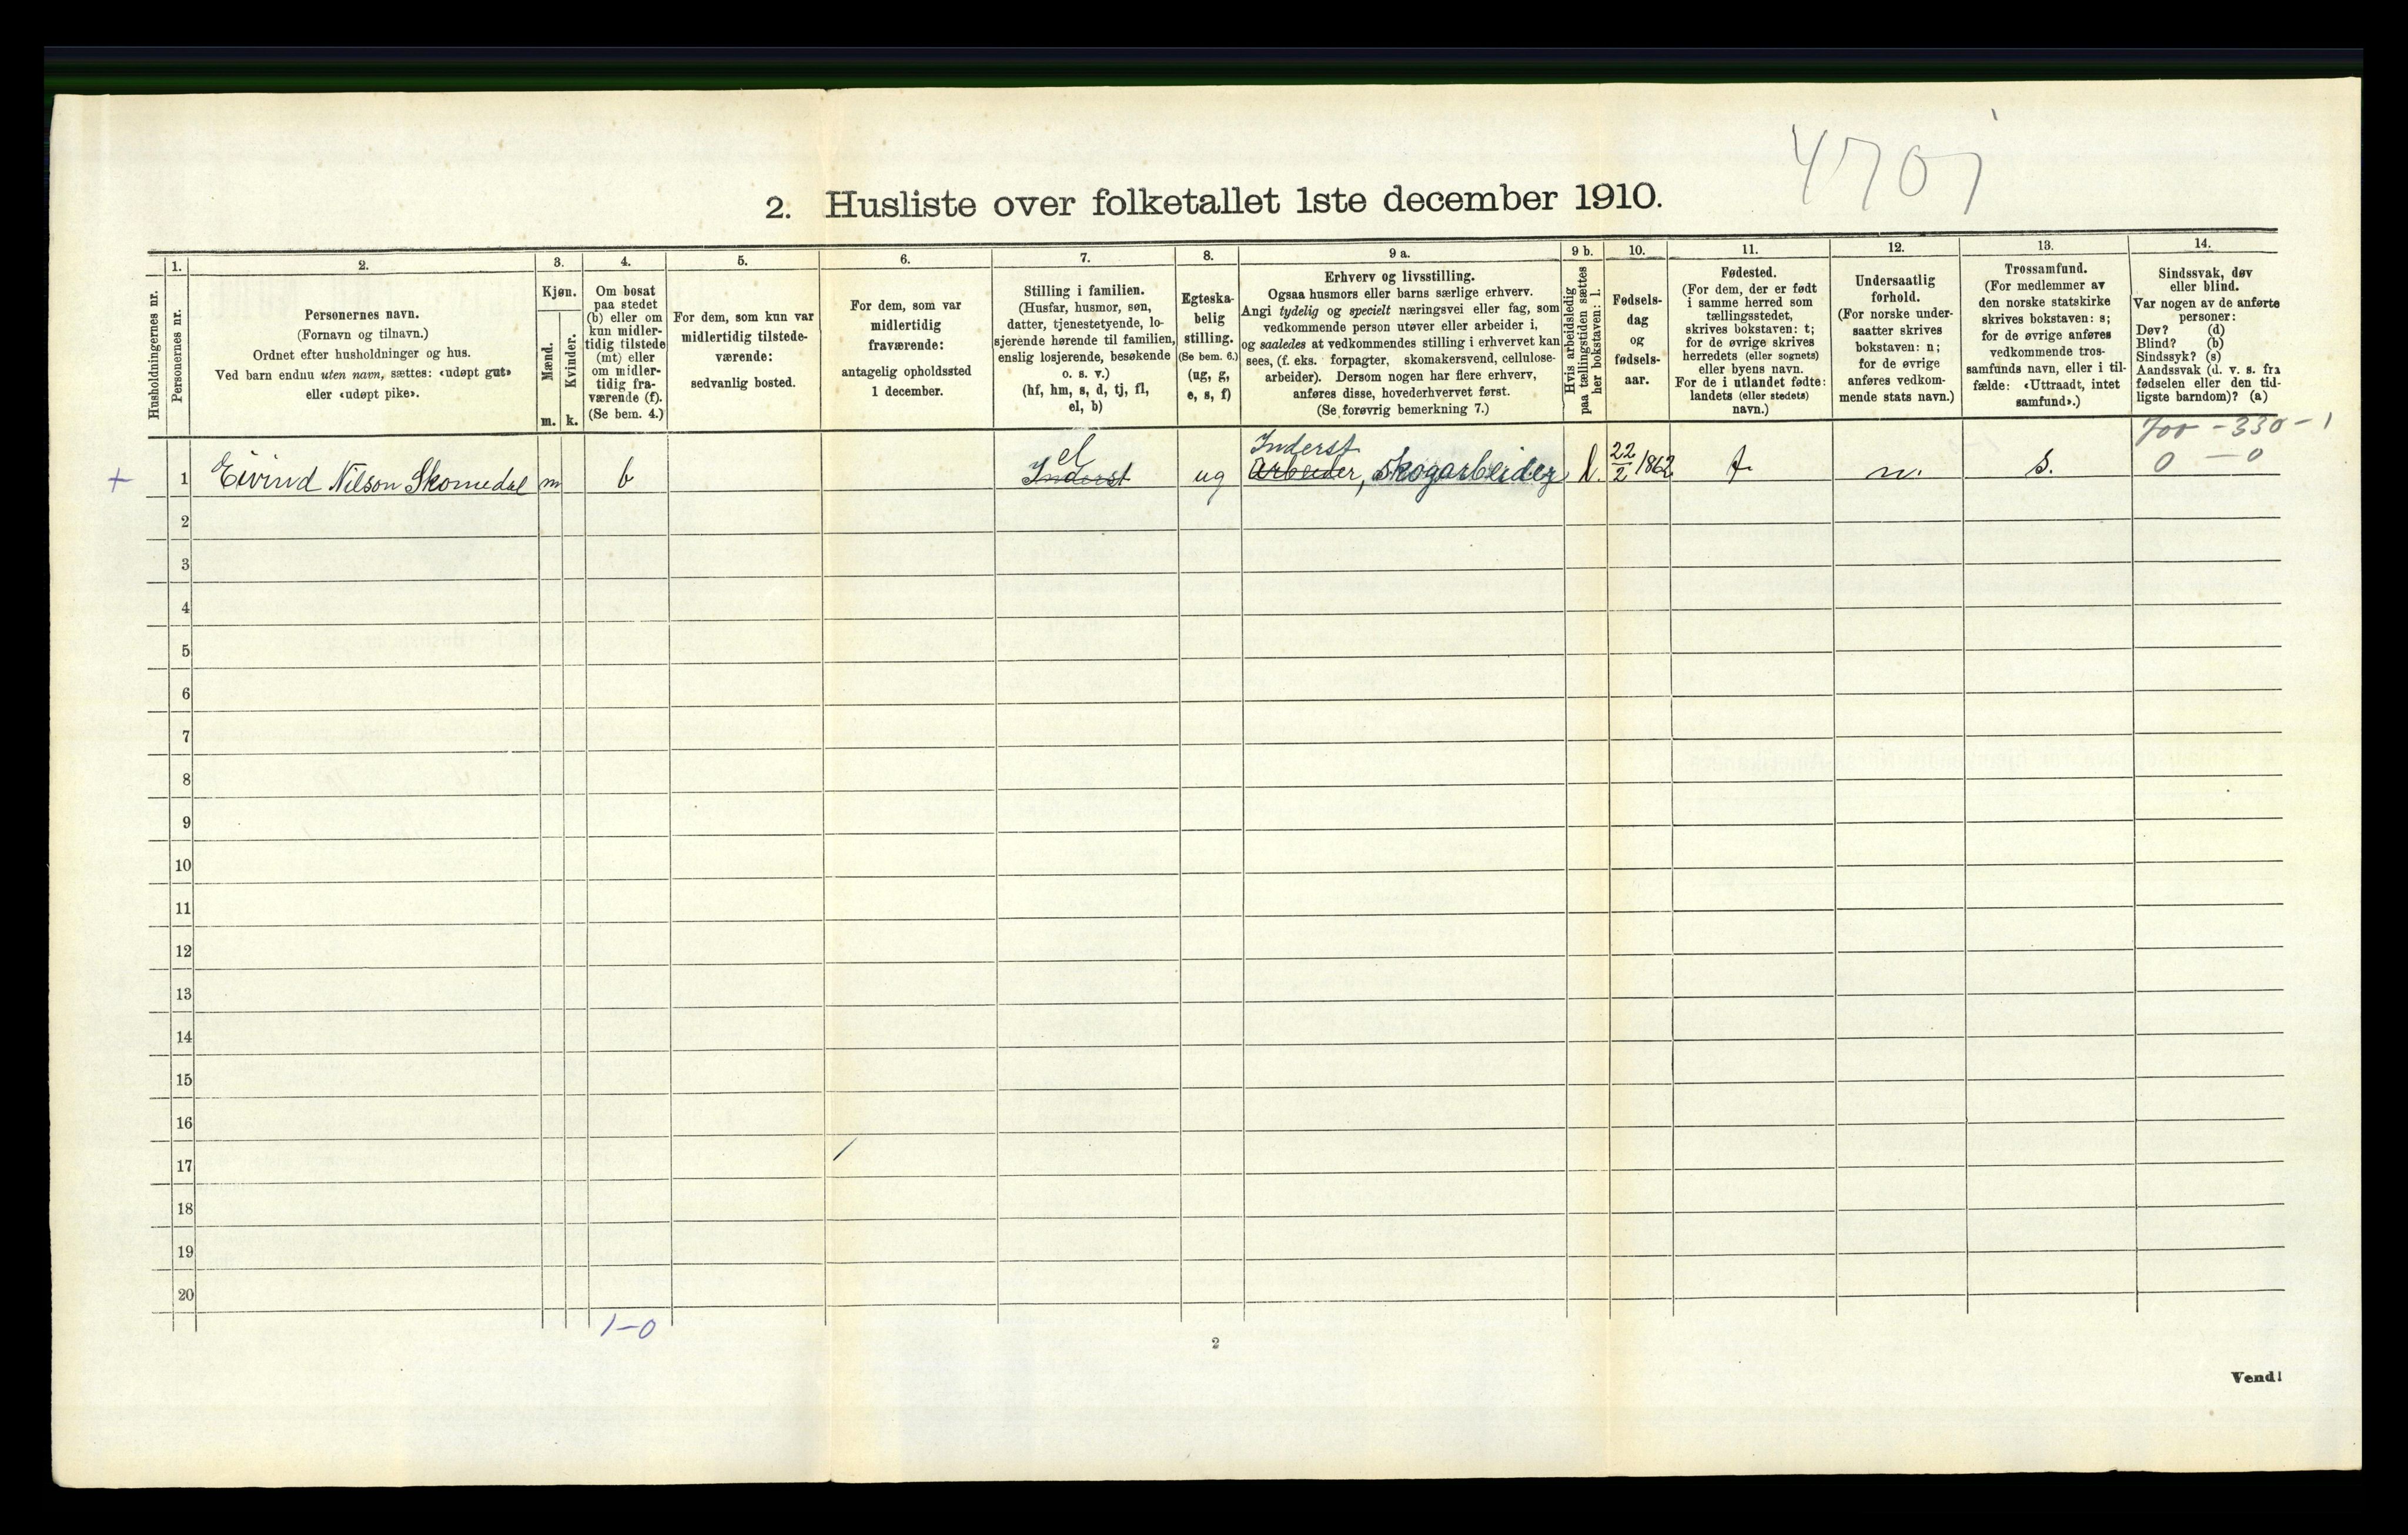 4701
2. Husliste over folketallet 1ste december 1910.
Husholdningernes nr.
1.
Personernes nr.
2.
Personernes navn.
(Fornavn og tilnavn.)
Ordnet efter husholdninger og hus.
Ved barn endnu uten navn, sættes: «udøpt gut»
eller «udøpt pike».
3.
Kjøn.
Mænd.
Kvinder.
m. k.
4.
Om bosat
paa stedet
(b) eller om
kun midler-
tidig tilstede
(mt) eller
om midler-
tidig fra-
værende (f).
(Se bem. 4.)
5.
For dem, som kun var
midlertidig tilstede-
værende:
sedvanlig bosted.
6.
For dem, som var
midlertidig
fraværende:
antagelig opholdssted
1 december.
7.
Stilling i familien.
(Husfar, husmor, søn,
datter, tjenestetyende, lo-
sjerende hørende til familien,
enslig losjerende, besøkende
o. s. v.)
(hf, hm, s, d, tj, fl,
el, b)
8.
Egteska-
belig
stilling.
(Se bem. 6.)
(ug, g,
e, s, f)
9 a.
Erhverv og livsstilling.
Ogsaa husmors eller barns særlige erhverv.
Angi tydelig og specielt næringsvei eller fag, som
vedkommende person utøver eller arbeider i,
og saaledes at vedkommendes stilling i erhvervet kan
sees, (f. eks. forpagter, skomakersvend, cellulose-
arbeider). Dersom nogen har flere erhverv,
anføres disse, hovederhvervet først.
(Se forøvrig bemerkning 7.)
9 b.
Hvis arbeidsledig
paa tællingstiden sættes
her bokstaven: l.
10.
Fødsels-
dag
og
fødsels-
aar.
11.
Fødested.
(For dem, der er født
i samme herred som
tællingsstedet,
skrives bokstaven: t;
for de øvrige skrives
herredets (eller sognets)
eller byens navn.
For de i utlandet fødte:
landets (eller stedets)
navn.)
12.
Undersaatlig
forhold.
(For norske under-
saatter skrives
bokstaven: n;
for de øvrige
anføres vedkom-
mende stats navn.)
13.
Trossamfund.
(For medlemmer av
den norske statskirke
skrives bokstaven: s;
for de øvrige anføres
vedkommende tros-
samfunds navn, eller i til-
fælde: «Uttraadt, intet
samfund».)
14.
Sindssvak, døv
eller blind.
Var nogen av de anførte
personer:
Døv? (d)
Blind? (b)
Sindssyk? (s)
Aandssvak (d. v. s. fra
fødselen eller den tid-
ligste barndom)? (a)
700 - 330 - 1
0 - 0
el
Inderst
+ 1 Eivind Nilson Skomedal m b Inderst ug Arbeider, skogarbeider l. 22/2 1862 t n. s.
2
3
4
5
6
7
8
9
10
11
12
13
14
15
16
17
18
19
20
1-0
2
Vend!